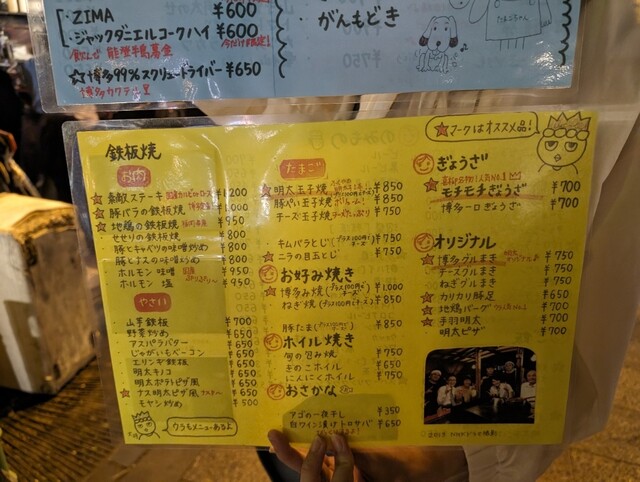 ・ZIMA ¥600
・ジャックダニエルコークハイ ¥600
飲んで 能登半島募金
☆博多99%スクリュードライバー ¥650
がんもどき
たまごちゃん
☆マークはオススメ品!
鉄板焼
お肉
素敵ステーキ ¥1200
豚バラの鉄板焼 ¥1000
地鶏の鉄板焼 ¥950
せせりの鉄板焼 ¥800
豚とキャベツの味噌炒め ¥800
豚とナスの味噌炒め ¥800
ホルモン 味噌 ¥950
ホルモン 塩 ¥950
やさい
山芋鉄板 ¥700
野菜炒め ¥650
アスパラバター ¥650
じゃがいもベーコン ¥650
エリンギ鉄板 ¥650
明太キノコ ¥650
明太ポテトピザ風 ¥650
ナス明太ピザ風 ¥650
モヤシ炒め ¥500
ウラもメニューあるよ
たまご
明太玉子焼 ¥850
豚ぺい玉子焼 ¥850
チーズ玉子焼 ¥850
キムバラとじ ¥750
ニラの目玉とじ ¥750
お好み焼き
博多み焼 ¥1,000
ねぎ焼 ¥850
豚たま ¥850
ホイル焼き
旬の包み焼 ¥750
きのこホイル ¥650
にんにくホイル ¥650
おさかな
アゴの一夜干し ¥350
白ワイン漬けトロサバ ¥650
ぎょうざ
モチモチぎょうざ ¥700
博多一口ぎょうざ ¥700
オリジナル
博多グルまき ¥750
チーズグルまき ¥750
ねぎグルまき ¥750
カリカリ豚足 ¥650
地鶏バーグ ¥700
手羽明太 ¥700
明太ピザ ¥700